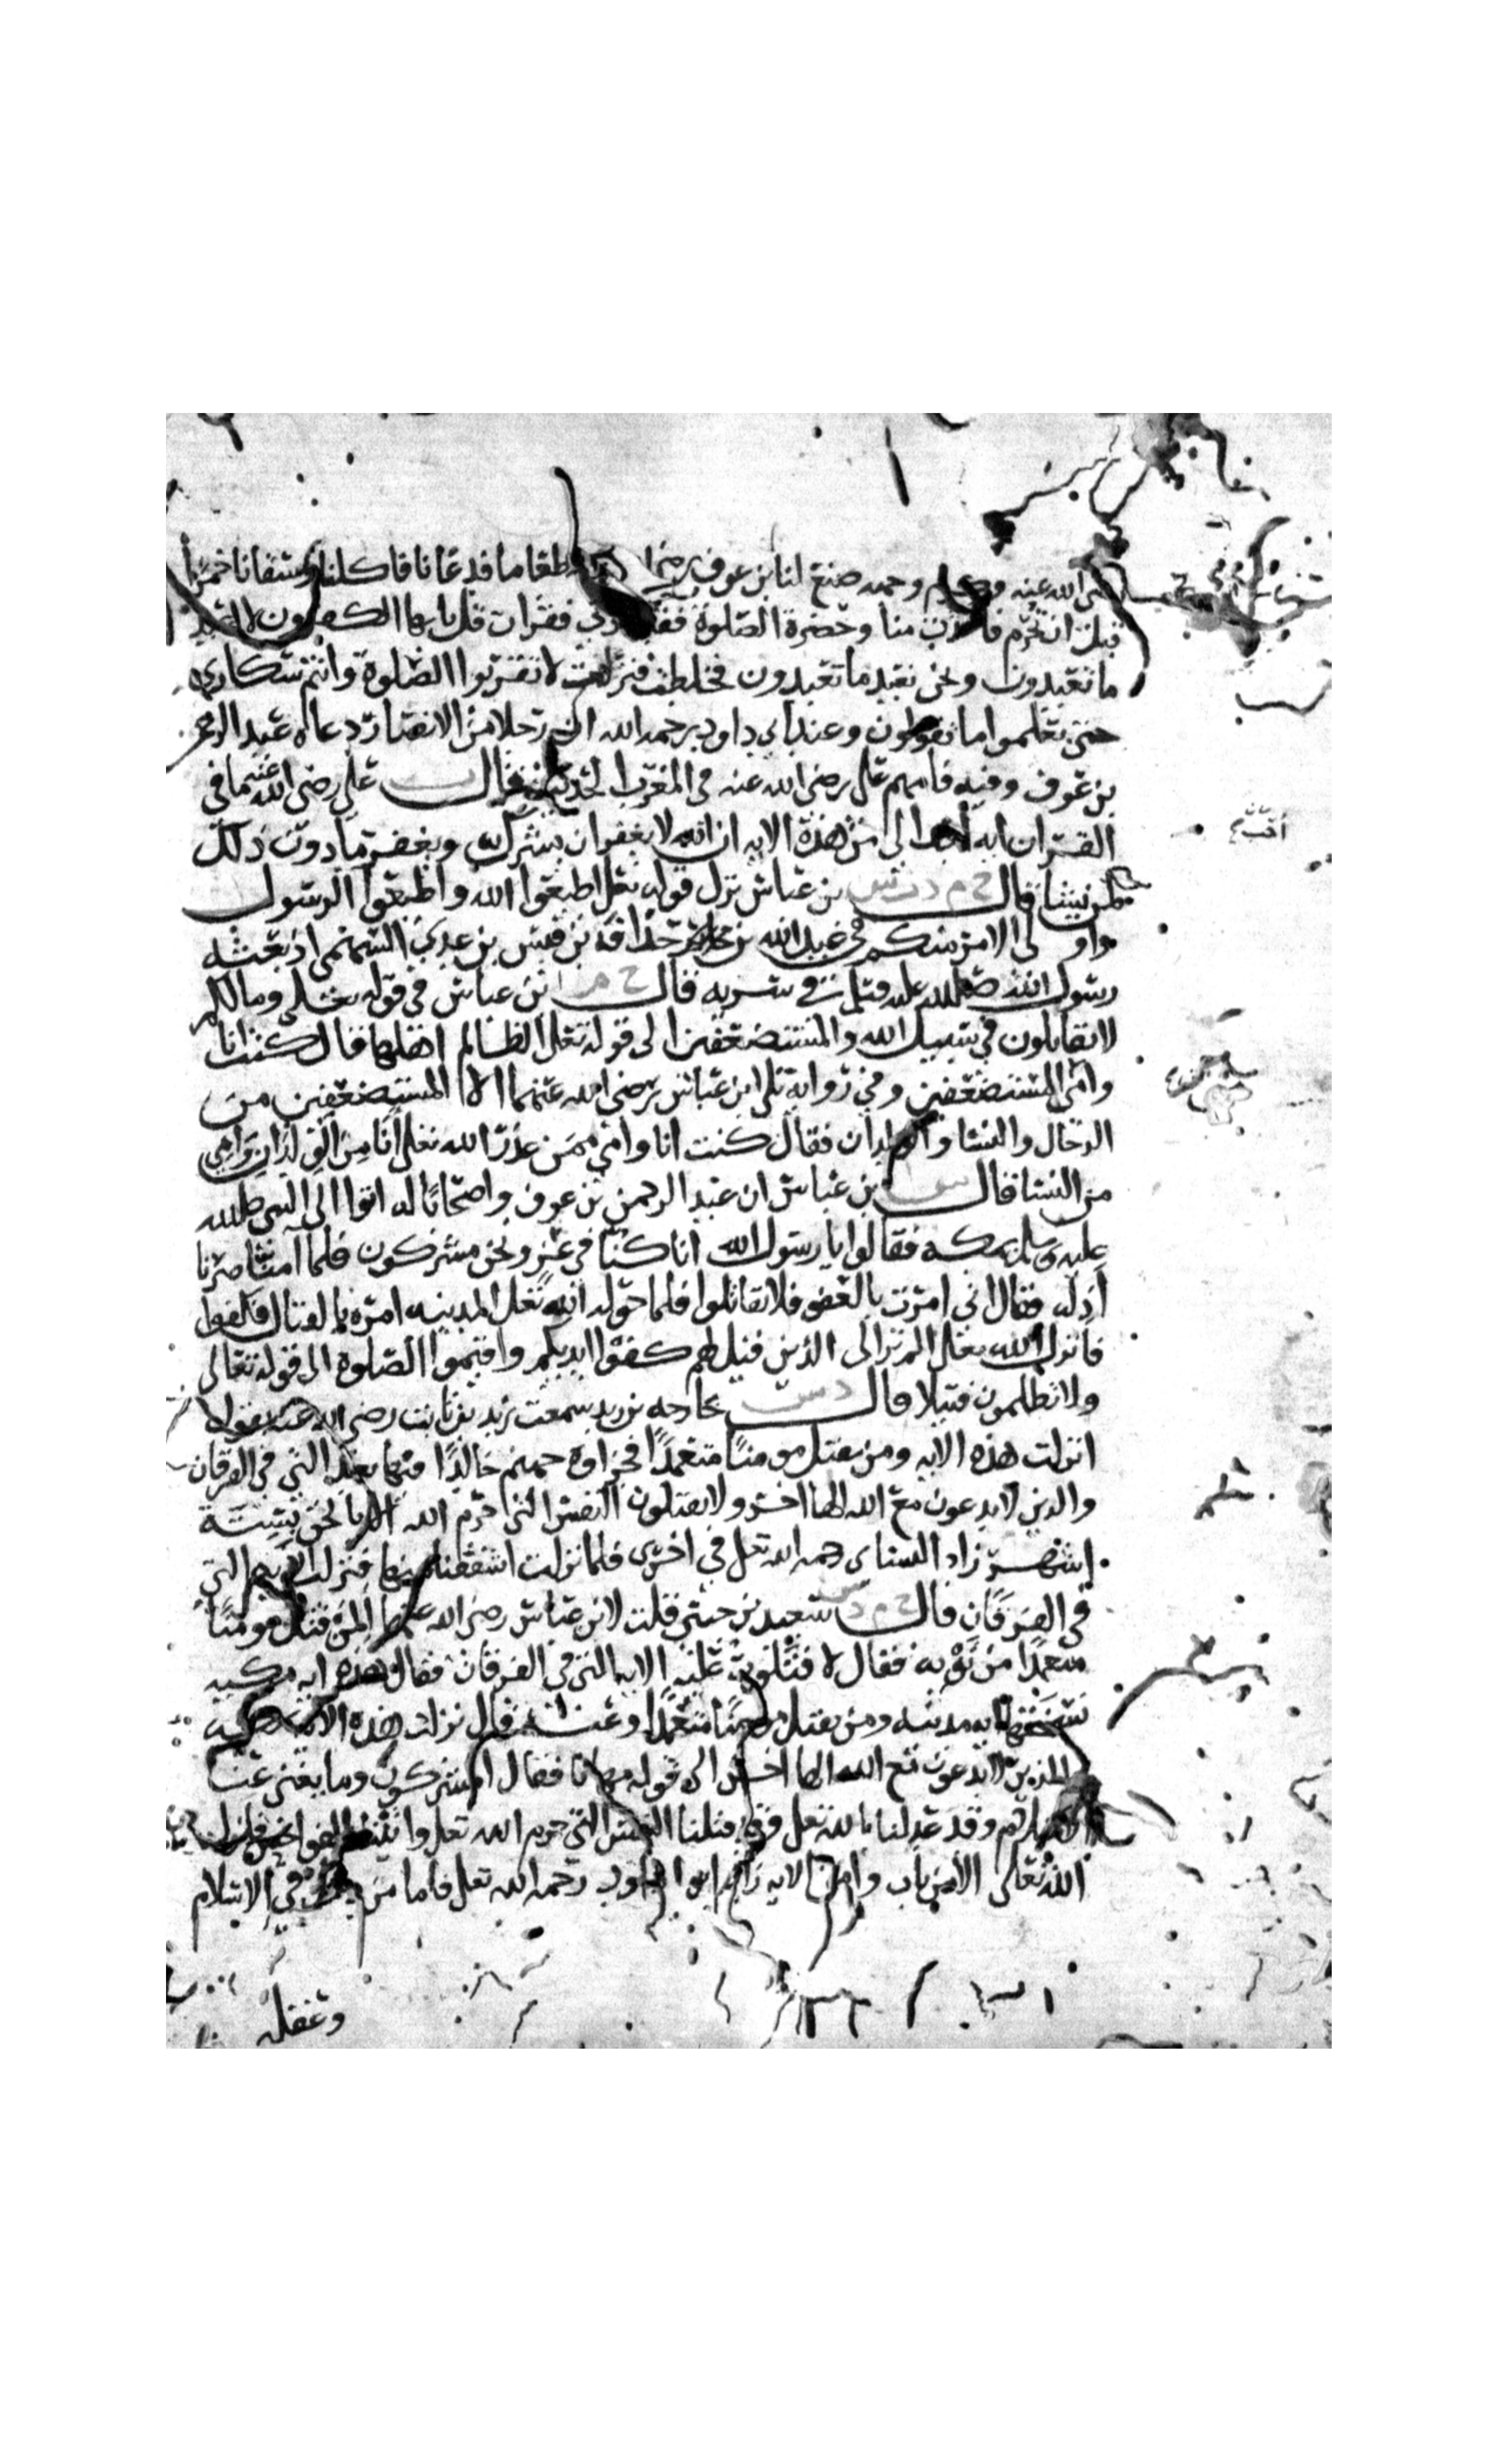 الله عنه وحمه صنع لنا بن عوف رضي طعاما فدعانا فاكلنا وسقانا خمرا
قبل ان تحرم فاخذت منا وحضرة الصلوة فقدموني فقرات قل يا يها الكفرون لا اعبد
ما تعبدون ونحن نعبد ما تعبدون فخلطت فنزلت لا تقربوا الصلوة وانتم سكارى
حتى تعلموا ما تقولون وعند ابي داود رحمه الله ان رجلا من الانصار دعاه وعبد الرحمن
بن عوف وفيه فامهم علي رضي الله عنه في المغرب الحديث قال علي رضي الله عنهما في
القران ايه احب الي من هذه الايه ان الله لا يغفر ان يشرك به ويغفر ما دون ذلك
لمن يشا قال خ م د ت س بن عباس نزل قوله تعلى اطيعوا الله واطيعوا الرسول
واولي الامر منكم في عبد الله بن حذافة بن قيس بن عدي السهمي اذ بعثه
رسول الله صلى الله عليه وسلم في سريه قال خ م بن عباس في قوله تعلى وما لكم
لا تقاتلون في سبيل الله والمستضعفين الى قوله تعلى الظالم اهلها قال كنت انا
وامي المستضعفين وفي رواية تلى ابن عباس رضي الله عنهما الا المستضعفين من
الرجال والنسا والولدان فقال كنت انا وامي ممن عذر الله تعلى انا من الولدان وامي
من النسا قال س بن عباس ان عبد الرحمن بن عوف واصحابا له اتوا الى النبي صلى الله
عليه وسلم بمكه فقالوا يا رسول الله انا كنا في عز ونحن مشركون فلما امنا صرنا
اذله فقال اني امرت بالعفو فلا تقاتلوا فلما حوله الله تعلى المدينه امره بالقتال فكفوا
فانزل الله تعلى الم تر الى الذين قيل لهم كفوا ايديكم واقيموا الصلوة الى قوله تعالى
ولا تظلمون فتيلا قال د س خارجه بن زيد سمعت زيد بن ثابت رضي الله عنه يقول
انزلت هذه الايه ومن يقتل مومنا متعمدا فجزاوه جهنم خالدا فيها بعد التي في الفرقان
والذين لا يدعون مع الله الها اخر ولا يقتلون النفس التي حرم الله الا بالحق بستة
اشهر زاد النساي رحمه الله تعلى في اخرى فلما نزلت اشفقنا منها فنزلت الايه التي
في الفرقان قال خ م د س سعيد بن جبير قلت لابن عباس رضي الله عنهما المن قتل مومنا
متعمدا من توبه فقال لا فتلوت عليه الايه التي في الفرقان فقال هذه ايه مكيه
نسختها ايه مدنيه ومن يقتل مومنا متعمدا وعنه قال نزلت هذه الايه بمكه
والذين لا يدعون مع الله الها اخر الى قوله مهانا فقال المشركون وما يغني عنا
الاسلام وقد عدلنا بالله تعلى وقد قتلنا النفس التي حرم الله تعلى واتينا الفواحش فانزل
الله تعالى الا من تاب وامن الايه زاد ابوا داود رحمه الله تعلى فاما من دخل في الاسلام
وعقله